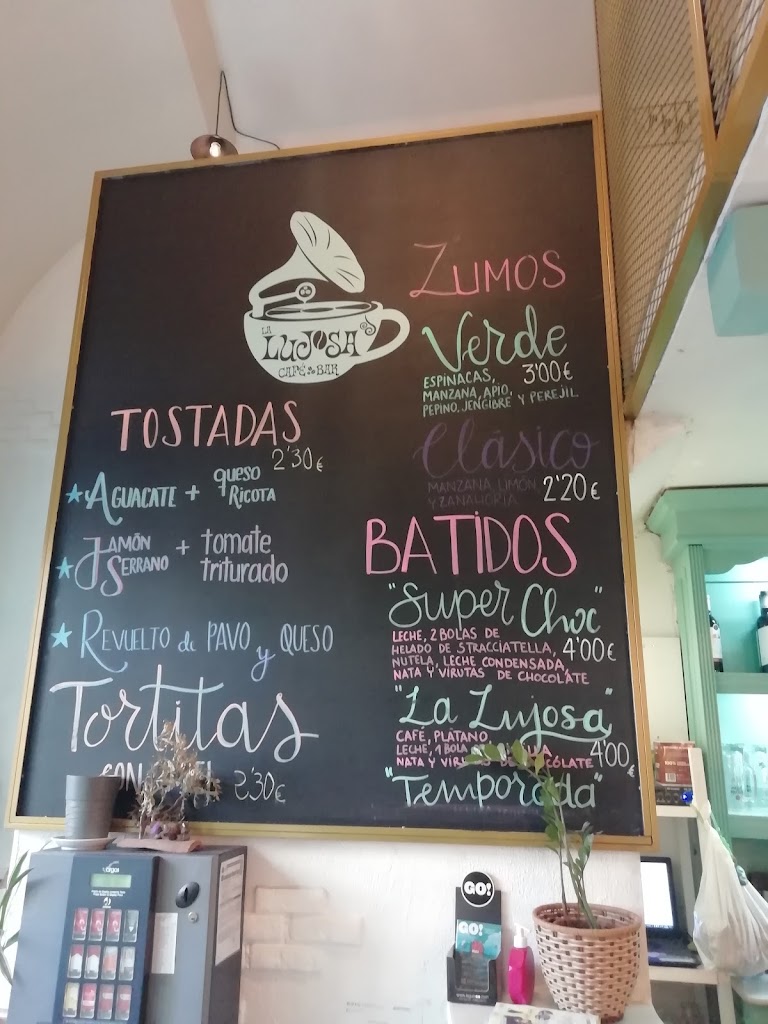 LA
LUJOSA
CAFÉ BAR
TOSTADAS
2'30€
AGUACATE + queso RICOTA
JAMÓN SERRANO + tomate triturado
REVUELTO de PAVO y QUESO
Tortitas
CON
2'30€
ZUMOS
Verde
3'00€
ESPINACAS,
MANZANA, APIO,
PEPINO, JENGIBRE Y PEREJIL
Clásico
MANZANA, LIMÓN
Y ZANAHORIA
2'20€
BATIDOS
"Super Choc"
LECHE, 2 BOLAS DE
HELADO DE STRACCIATELLA,
4'00€
NUTELA, LECHE CONDENSADA,
NATA Y VIRUTAS DE CHOCOLATE
"La Lujosa"
CAFÉ, PLÁTANO,
LECHE, 1 BOLA
4'00€
NATA Y VIRUTAS DE CHOCOLATE
"Temporada"
GO!
GO!